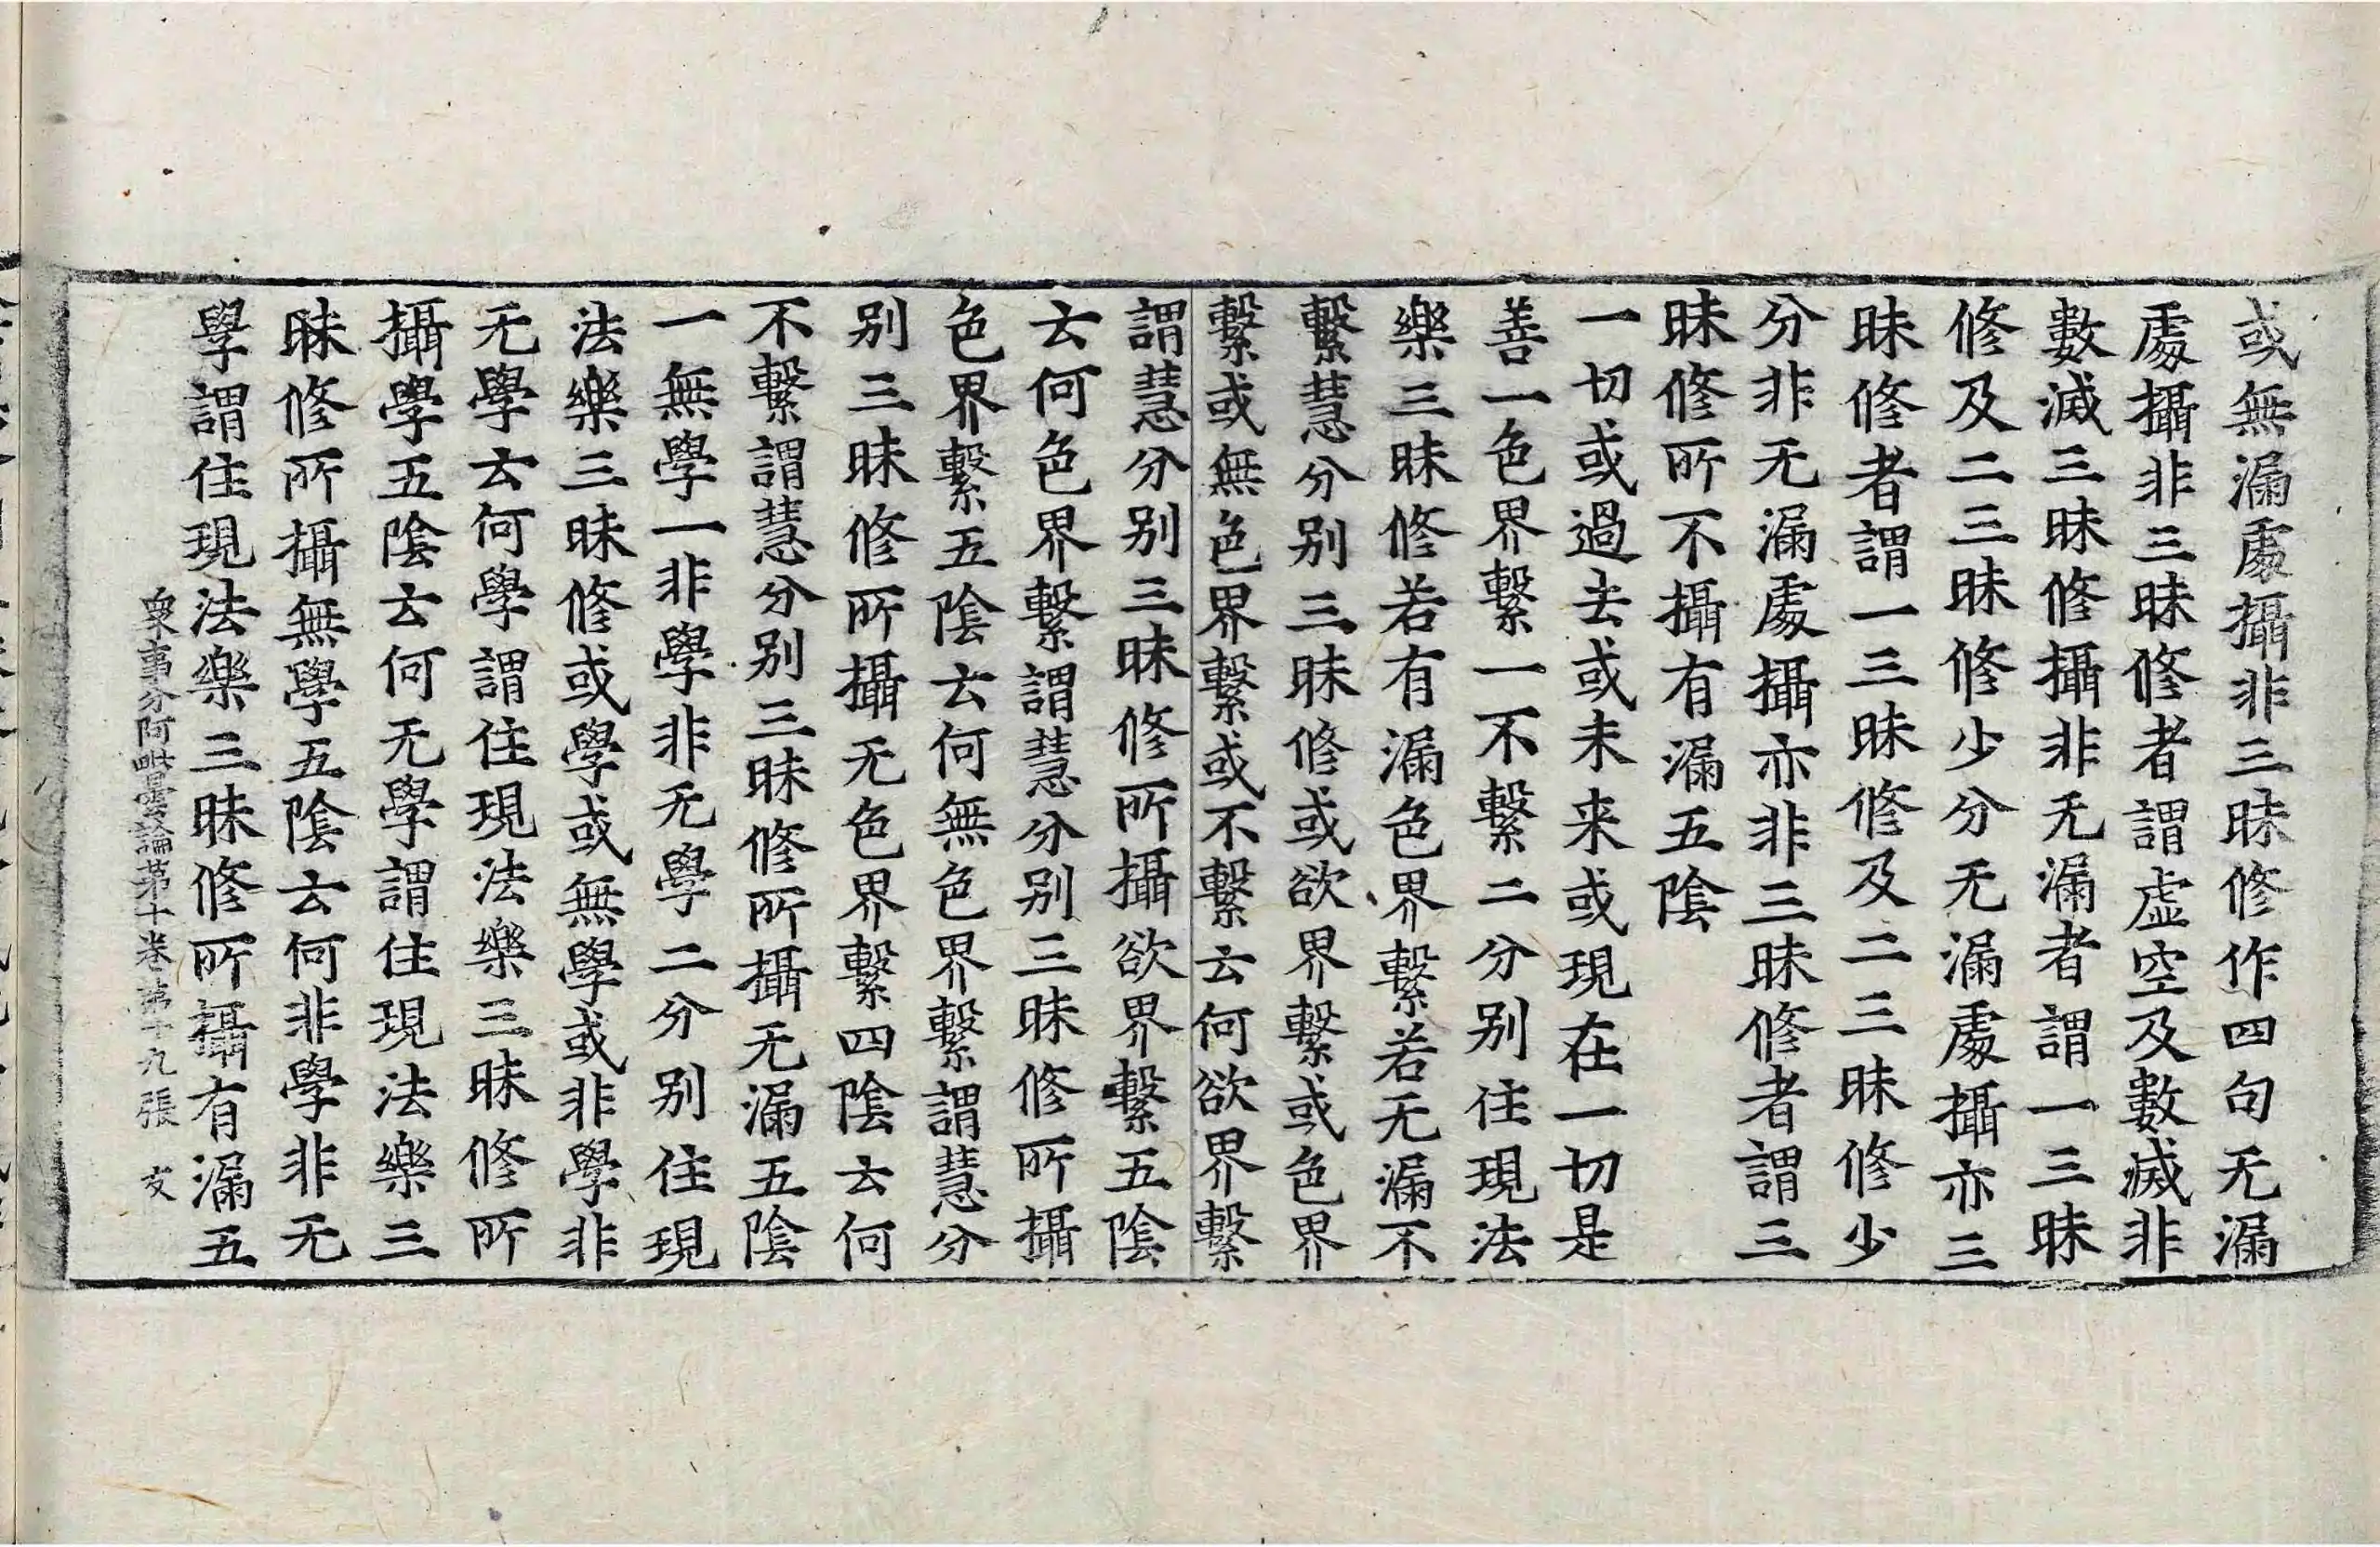 或無漏處攝非三昧修作四句无漏
處攝非三昧修者謂虛空及數滅非
數滅三昧修攝非无漏者謂一三昧
修及二三昧修少分无漏處攝亦三
昧修者謂一三昧修及二三昧修少
分非无漏處攝亦非三昧修者謂三
昧修所不攝有漏五陰
一切或過去或未来或現在一切是
善一色界繫一不繫二分別住現法
樂三昧修若有漏色界繫若无漏不
繫慧分別三昧修或欲界繫或色界
繫或無色界繫或不繫云何欲界繫
謂慧分別三昧修所攝欲界繫五陰
云何色界繫謂慧分別三昧修所攝
色界繫五陰云何無色界繫謂慧分
別三昧修所攝无色界繫四陰云何
不繫謂慧分別三昧修所攝无漏五陰
一無學一非學非无學二分別住現
法樂三昧修或學或無學或非學非
无學云何學謂住現法樂三昧修所
攝學五陰云何无學謂住現法樂三
昧修所攝無學五陰云何非學非无
學謂住現法樂三昧修所攝有漏五
衆事分阿毗曇論第十卷第十九張 文